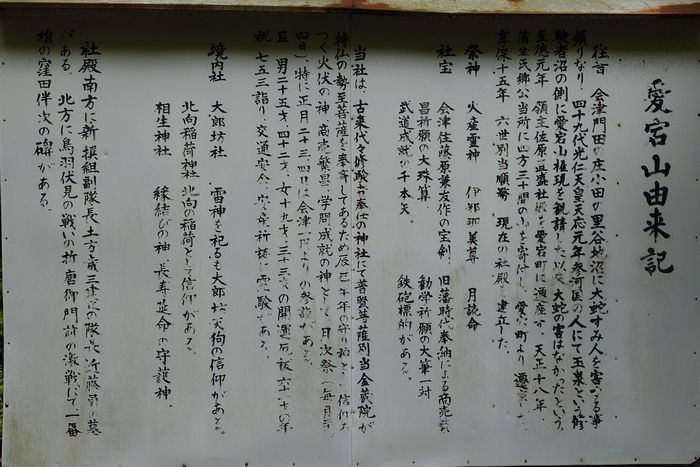 愛宕山由来記
往昔 会津門田の庄小田の里谷地沼に大蛇すみ人を害する事
頻りなり、四十九代光仁天皇天応元年参河国の人にて玉泉という修
験者沼の側に愛宕山権現を観請した以後大蛇の害はなかったという。
至徳元年 領主佐原 盛社殿を愛宕町に遷座す、天正十八年、
蒲生氏郷公当所に四方三十間の山を寄付し、愛宕町より遷宮した、
享保十五年 六世別当順勝 現在の社殿 建立した。
祭神 火産霊神 伊邪那美尊 月読命
社宝 会津住藤原兼友作の宝剣、旧藩時代奉納による商売繁
昌祈願の大珠算 勧学祈願の大筆一対
武道成就の千本矢 鉄砲標的がある。
当社は、古来代々修験者奉仕の神社にて普賢菩薩別当金蔵院が
持仏の勢至菩薩を奉斎してあるため辰巳午年の守り神と 信仰
つく火伏の神 商売繁昌 学問成就の神として 月次祭(毎月二十
四日)、特に正月二十三、四日は会津一円よりの参詣がある。
五 男二十五才、四十二才、女十九才、三十三才の開運厄祓、六十一才の年
祝、七五三詣り、交通安全、 祈祷に霊験がある。
境内社 太郎坊社 雷神を祀るも太郎坊天狗の信仰がある。
北向稲荷神社 北向の稲荷として信仰がある。
相生神社 縁結びの神 長寿延命の守護神。
社殿南方に新撰組副隊長土方歳三建立の隊長近藤勇の墓
がある。 北方に鳥羽伏見の戦いの折唐御門前の激戦にて一番
槍の窪田伴次の碑がある。